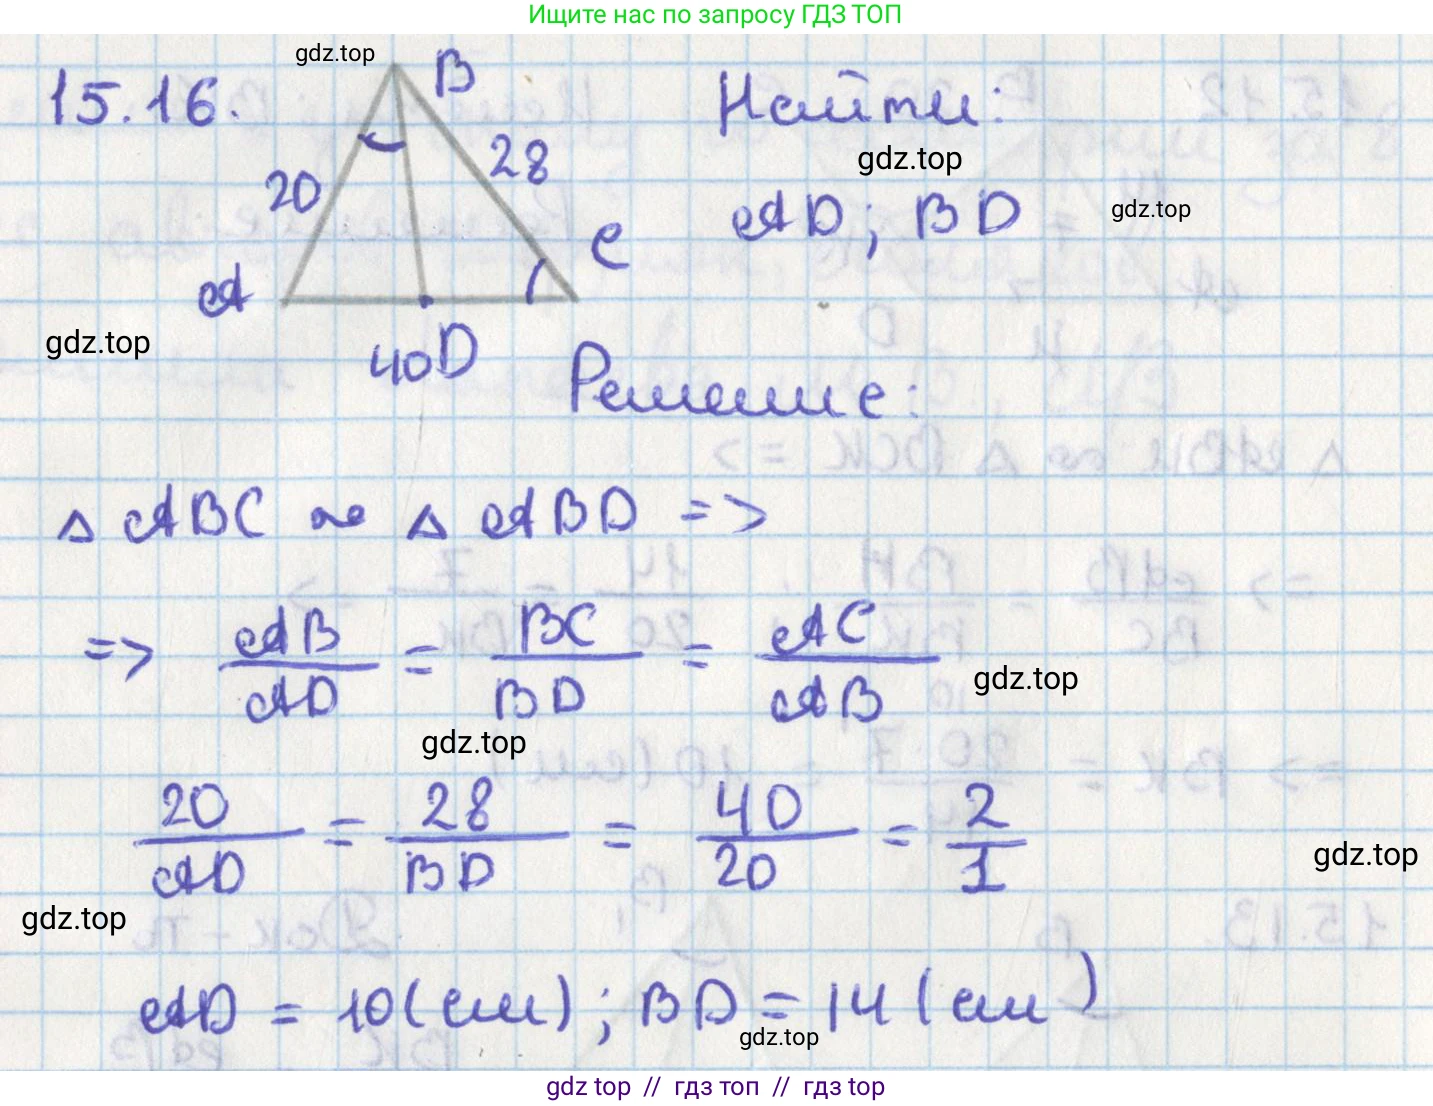 Ищите нас по запросу ГДЗ ТОП
gdz.top
15.16.
B
Найти:
20
28
gdz.top
AD; BD
gdz.top
A
C
gdz.top
40
D
Решение:
△ ABC ∾ △ ABD =>
=> AB/AD = BC/BD = AC/AB
gdz.top
gdz.top
20/AD = 28/BD = 40/20 = 2/1
gdz.top
gdz.top
AD = 10 (см); BD = 14 (см)
gdz.top
gdz top // гдз топ // гдз top